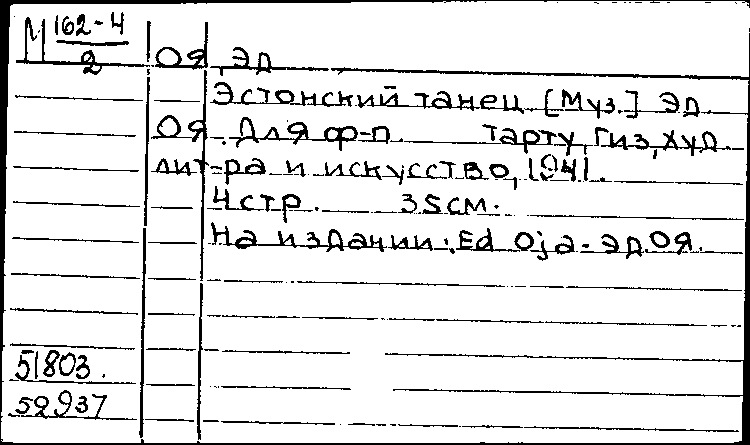 М 162-4
2
Оя, Эд
Эстонский танец [Муз.] Эд.
Оя. Для ф-п. Тарту, Гиз, худ.
лит-ра и искусство, 1941.
4 стр. 35 см.
На издании: Ed Oja - Эд. Оя.
51803.
52937